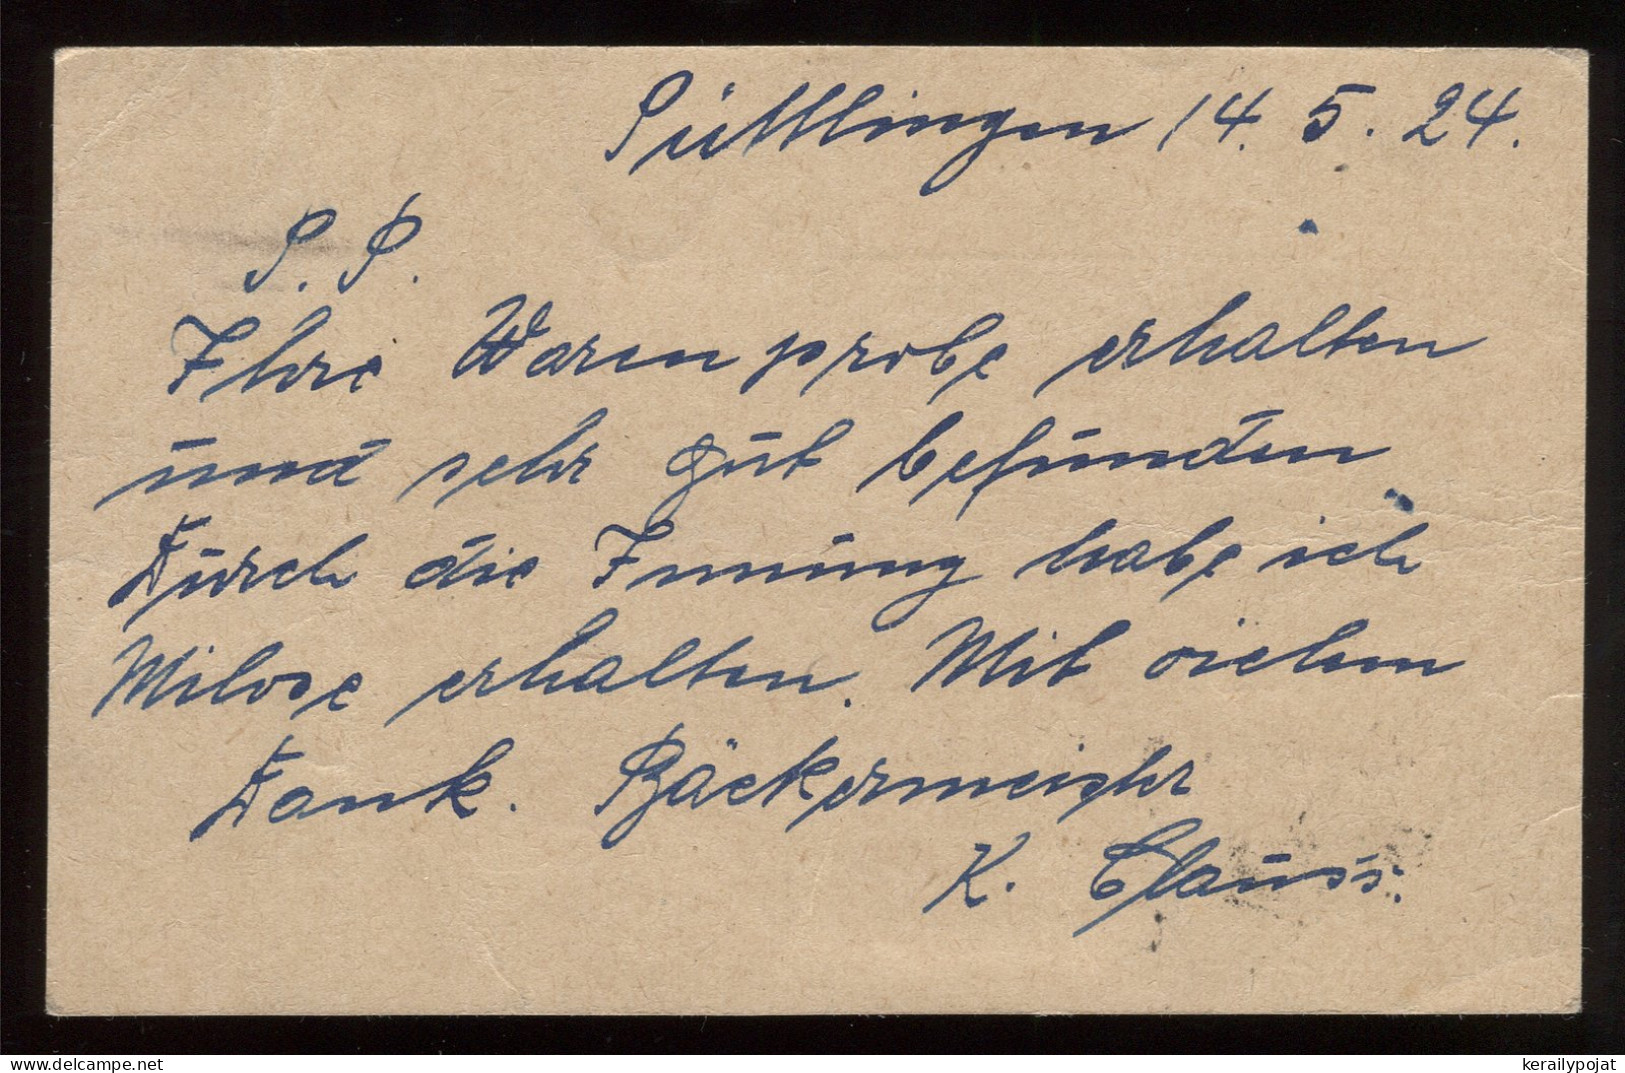 Püttlingen 14. 5. 24.
P. P.
Ihre Warenprobe erhalten
und sehr gut befunden
Durch die Innung habe ich
erhalten. Mit vielem
Dank. Bäckermeister
K. Clauss.
© www.delcampe.net
kerailypojat